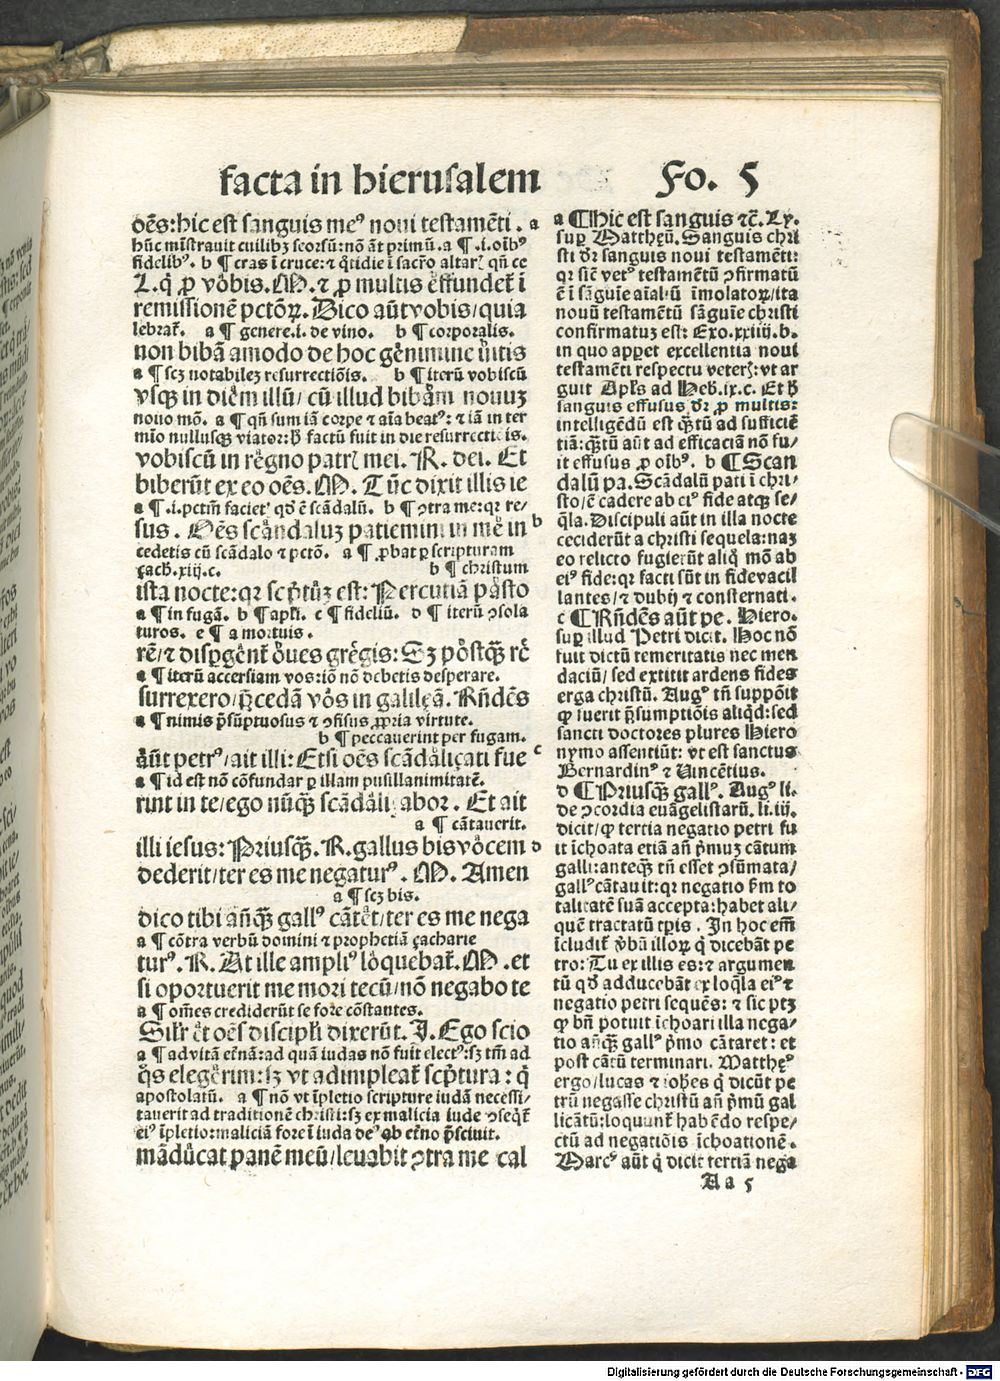 facta in hierusalem Fo. 5
oēs: hic est sanguis meꝰ noui testamēti. a
hūc mīstrauit cuilibꝫ seorsū: nō āt primū. a ¶ .i. oībꝰ
fidelibꝰ. b ¶ cras ī cruce: ⁊ q̄tidie ī sacrō altarꝭ qn̄ ce
L. q̇ ꝓ vobis. M. ⁊ ꝓ multis effundet̄ ī
remissionē pctōꝝ. Dico aūt vobis/ quia
lebrat̄. a ¶ genere .i. de vino. b ¶ corporalis.
non bibā amodo de hoc genimine vitis
a ¶ scꝫ notabileꝫ resurrectiōis. b ¶ iterū vobiscū
vsqꝫ in diem illū/ cū illud bibam nouuꝫ
nouo mō. a ¶ qn̄ sum iā corpe ⁊ aīa beatꝰ: ⁊ iā in ter
mīo nullusqꝫ viator: ꝙ factū fuit in die resurrectiōis.
vobiscū in regno patrꝭ mei. R. dei. Et
biberūt ex eo oēs. M. Tūc dixit illis ie
a ¶ .i. pctm̄ facietꝭ qd̓ ē scādalū. b ¶ ꝯtra me: qꝛ re-
sus. Oēs scādaluꝫ patiemini in me in b
cedetis cū scādalo ⁊ pctō. a ¶ ꝓbat ꝑ scripturam
çach̄. xiij. c. b ¶ christum
ista nocte: qꝛ scptūꝫ est: Percutiā pasto
a ¶ in fugā. b ¶ apl̄i. c ¶ fideliū. d ¶ iterū ꝯsola
turos. e ¶ a mortuis.
rē/ ⁊ dispgent̄ oues gregis: Sꝫ postqꝫ re
a ¶ iterū accersiam vos: iō nō debetis desperare.
surrexero/ p̄cedā vos in galileā. Rn̄dēs
a ¶ nimis p̄sūptuosus ⁊ ꝯfisus ꝓpria virtute.
b ¶ peccauerint per fugam.
aūt petrꝰ/ ait illi: Etsi oēs scādaliçati fue c
a ¶ id est nō cōfundar ꝑ illam pusillanimitatē.
rint in te/ ego nūqꝫ scādaliçabor. Et ait
a ¶ cātauerit.
illi iesus: Priusqꝫ. R. gallus bis vocem d
dederit/ ter es me negaturꝰ. M. Amen
a ¶ scꝫ bis.
dico tibi an̄qꝫ gallꝰ cātet/ ter es me nega
a ¶ cōtra verbū domini ⁊ prophetiā çacharie
turꝰ. R. At ille ampliꝰ loquebat̄. M. et
si oportuerit me mori tecū/ nō negabo te
a ¶ om̄es crediderūt se fore cōstantes.
Silr̄ et oēs discipl̄i dixerūt. J. Ego scio
a ¶ ad vitā et̄nā: ad quā iudas nō fuit electꝰ: sꝫ tm̄ ad
q̇s elegerim: sꝫ vt adimpleat̄ scptura: q̇
apostolatū. a ¶ nō vt īpletio scripture iudā necessi/
tauerit ad traditionē christi: sꝫ ex malicia iude ꝯseqt̄
eiꝰ īpletio: maliciā fore ī iuda deꝰ ab et̄no p̄sciuit.
māducat panē meū/ leuabit ꝯtra me cal
a ¶ Hic est sanguis ⁊c̄. Ly.
suꝑ Mattheū. Sanguis chri
sti dr̄ sanguis noui testamēti:
qꝛ sic̄ vetꝰ testamētū ꝯfirmatū
ē ī sāguīe aīaliū īmolatoꝝ/ ita
nouū testamētū sāguīe christi
confirmatuꝫ est: Exo. xxiiij. b.
in quo apꝑet excellentia noui
testamēti respectu veterꝭ: vt ar
guit Apl̄s ad Heb. ix. c. Et ꝙ
sanguis effusus dr̄ ꝓ multis:
intelligēdū est qꝫtū ad sufficiē
tiā: qꝫtū aūt ad efficaciā nō fu/
it effusus ꝓ oībꝰ. b ¶ Scan
dalū pa. Scādalū pati ī chri/
sto/ ē cadere ab eiꝰ fide atqꝫ se/
q̄la. Discipuli aūt in illa nocte
ceciderūt a christi sequela: naꝫ
eo relicto fugierūt aliq̇ mō ab
eiꝰ fide: qꝛ facti sūt in fide vacil
lantes/ ⁊ dubij ⁊ consternati.
c ¶ Rn̄dēs aūt pe. Hiero.
suꝑ illud Petri dicit. Hoc nō
fuit dictū temeritatis nec men
daciū/ sed extitit ardens fides
erga christū. Augꝰ tn̄ suppoīt
ꝙ fuerit p̄sumptiōis aliqd: sed
sancti doctores plures Hiero
nymo assentiūt: vt est sanctus
Bernardinꝰ ⁊ Vincētius.
d ¶ Priusqꝫ gallꝰ. Augꝰ li.
de ꝯcordia euāgelistarū. li. iij.
dicit/ ꝙ tertia negatio petri fu
it īchoata etiā an̄ p̄muꝫ cātum
galli: anteqꝫ tn̄ esset ꝯsūmata/
gallꝰ cātauit: qꝛ negatio ẜm to
talitatē suā accepta: habet ali/
quē tractatū tp̄is. In hoc em̄
īcludit̄ p̄bū illoꝝ q̇ dicebāt pe
tro: Tu ex illis es: ⁊ argumen
tū qd̓ adducebāt ex loq̄la eiꝰ ⁊
negatio petri sequēs: ⁊ sic ptꝫ
ꝙ bn̄ potuit īchoari illa nega/
tio an̄qꝫ gallꝰ p̄mo cātaret: et
post cātū terminari. Mattheꝰ
ergo/ lucas ⁊ iohes q̇ dicūt pe
trū negasse christū an̄ p̄mū gal
licātū: loquunt̄ habēdo respe/
ctū ad negatiōis īchoationē.
Marcꝰ aūt q̇ dicit tertiā nega
Aa 5
Digitalisierung gefördert durch die Deutsche Forschungsgemeinschaft - DFG